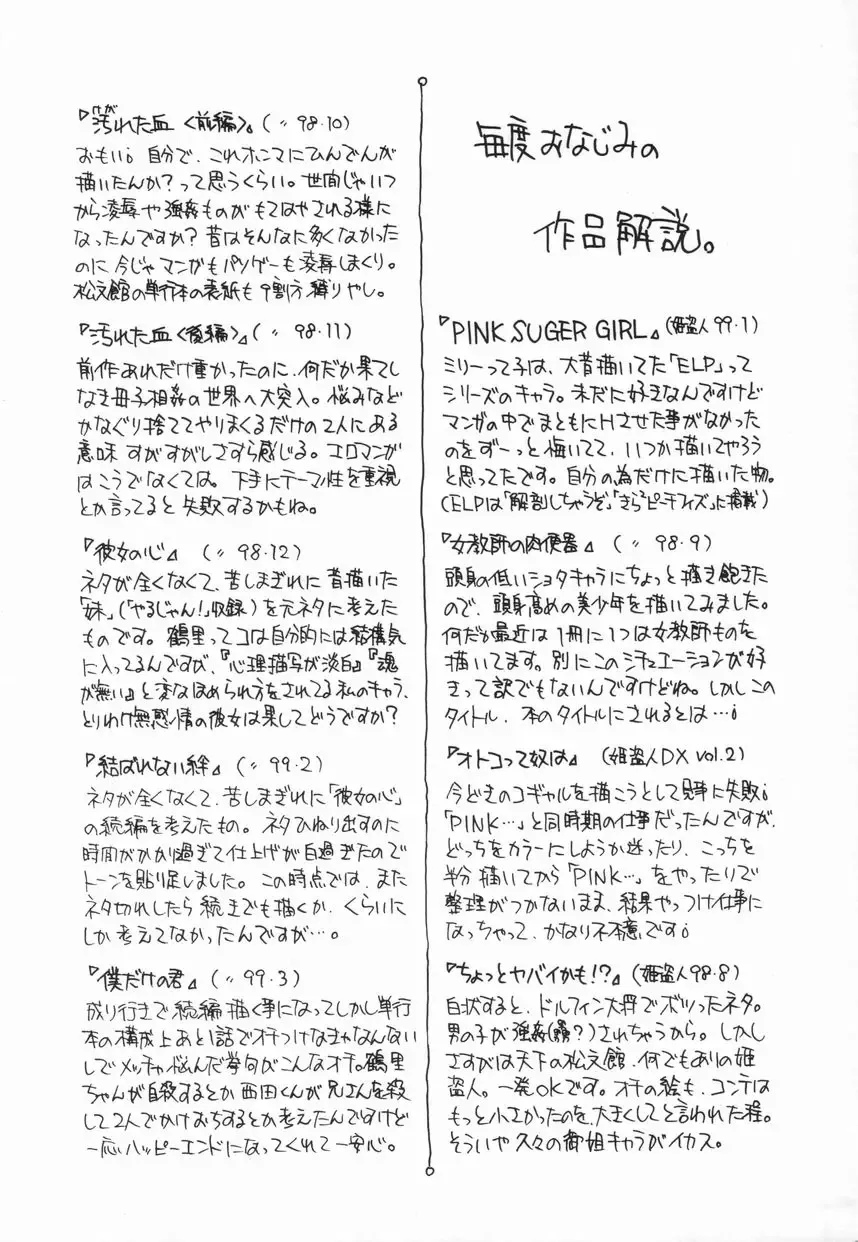 毎度おなじみの
作品解説。
『PINK SUGER GIRL』(姫盗人 99・1)
ミリーって子は、大昔描いてた「ELP」って
シリーズのキャラ。未だに好きなんですけど
マンガの中でまともにHさせた事がなかった
のをずーっと悔いてて、いつか描いてやろう
と思ってたです。自分の為だけに描いた物。
(ELPは「解剖しちゃうぞ」「きらら ピーチフィズ」に掲載)
『女教師の肉便器』(〃 98・9)
頭身の低いショタキャラにちょっと描き飽きた
ので、頭身高めの美少年を描いてみました。
何だか最近は1冊に1つは女教師ものを
描いてます。別にこのシチュエーションが好
きって訳でもないんですけどね。しかしこの
タイトル、本のタイトルにされるとは…。
『オトコって奴は』(姫盗人DX vol.2)
今どきのコギャルを描こうとして見事に失敗。
「PINK…」と同時期の仕事だったんですが、
どっちをカラーにしようか迷ったり、こっちを
半分描いてから「PINK…」をやったりで
整理がつかないまま、結果やっつけ仕事に
なっちゃって、かなり不本意です。
『ちょっとヤバイかも!?』(姫盗人98・8)
白状すると、ドルフィン大将でボツったネタ。
男の子が強姦(?)されちゃうから。しかし
さすがは天下の松文館、何でもありの姫
盗人。一発OKです。オチの絵も、コンテは
もっと小さかったのを、大きくしてと言われた程。
そういや久々の御姐キャラがイカス。
『汚れた血〈前編〉』(〃 98・10)
おもい。自分で、これホンマにひんでんが
描いたんか?って思うくらい。世間じゃいつ
から凌辱や強姦ものがもてはやされる様に
なったんですか?昔はそんなに多くなかった
のに今じゃマンガもパソゲーも凌辱しまくり。
松文館の単行本の表紙も9割方縛りやし。
『汚れた血〈後編〉』(〃 98・11)
前作あれだけ重かったのに、何だか果てし
なき母子相姦の世界へ大突入。悩みなど
かなぐり捨ててやりまくるだけの2人にある
意味すがすがしさすら感じる。エロマンガ
はこうでなくては。下手にテーマ性を重視
とか言ってると失敗するかもね。
『彼女の心』(〃 98・12)
ネタが全くなくて、苦しまぎれに昔描いた
「妹」(「やるじゃん!」収録)を元ネタに考えた
ものです。鶴里ってコは自分的には結構気
に入ってるんですが、『心理描写が淡白』『魂
が無い』と変なほめられ方をされてる私のキャラ、
とりわけ無感情の彼女は果してどうですか?
『結ばれない絆』(〃 99・2)
ネタが全くなくて、苦しまぎれに「彼女の心」
の続編を考えたもの。ネタひねり出すのに
時間がかかり過ぎて仕上げが白過ぎたので
トーンを貼り足しました。この時点では、また
ネタ切れしたら続きでも描くか、くらいに
しか考えてなかったんですが…。
『僕だけの君』(〃 99・3)
成り行きで続編描く事になってしかし単行
本の構成上あと1話でオチつけなきゃなんない
しでメッチャ悩んだ挙句がこんなオチ。鶴里
ちゃんが自殺するとか西田くんが兄さんを殺
して2人でかけおちするとか考えたんですけど
一応ハッピーエンドになってくれて一安心。